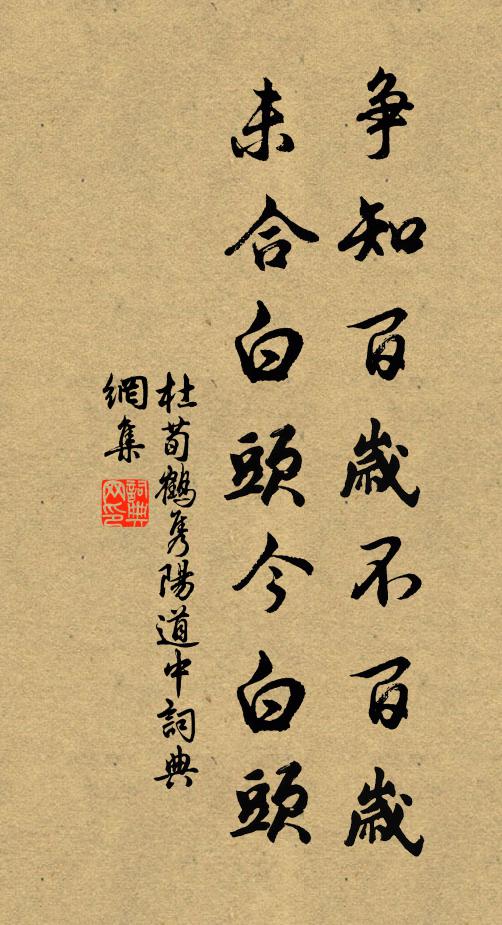 争知百歲不百歲
未合白頭今白頭
杜荀鶴隽陽道中詞典
網集
詞典
网印